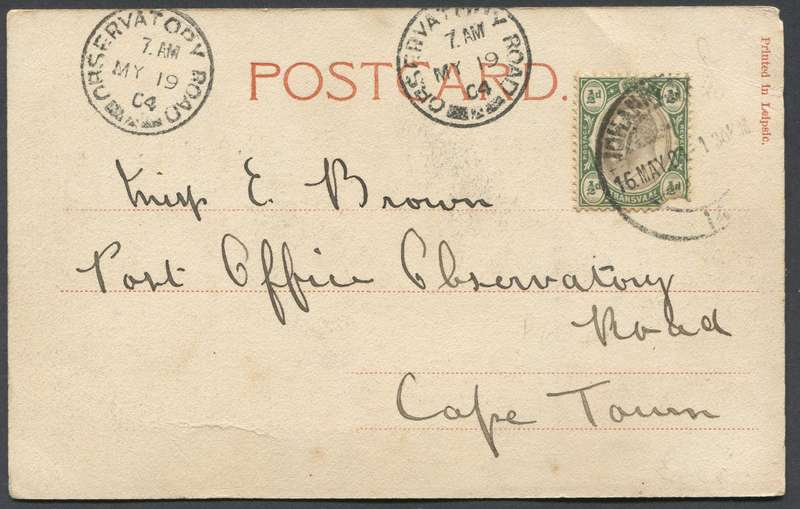 OBSERVATORY ROAD
7. AM
MY 19
04
OBSERVATORY ROAD
7. AM
MY 19
04
POSTCARD.
Printed in Leipsic.
½d ½d
POSTAGE
½d ½d
TRANSVAAL
JOHANN
16. MAY
Miss E. Brown
Post Office Observatory
Road
Cape Town